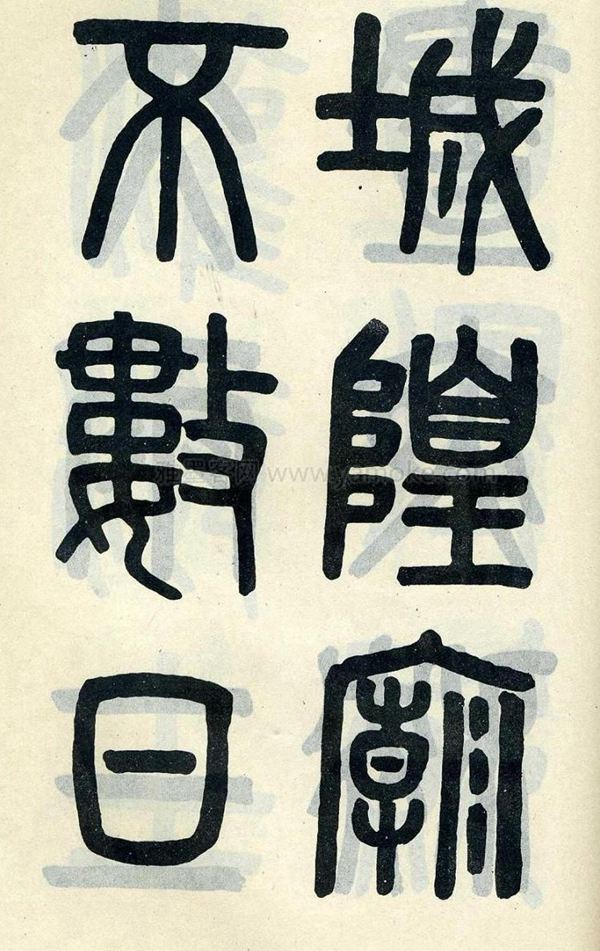 城隍廟
不數日
雅墨客网 www.yamoke.com